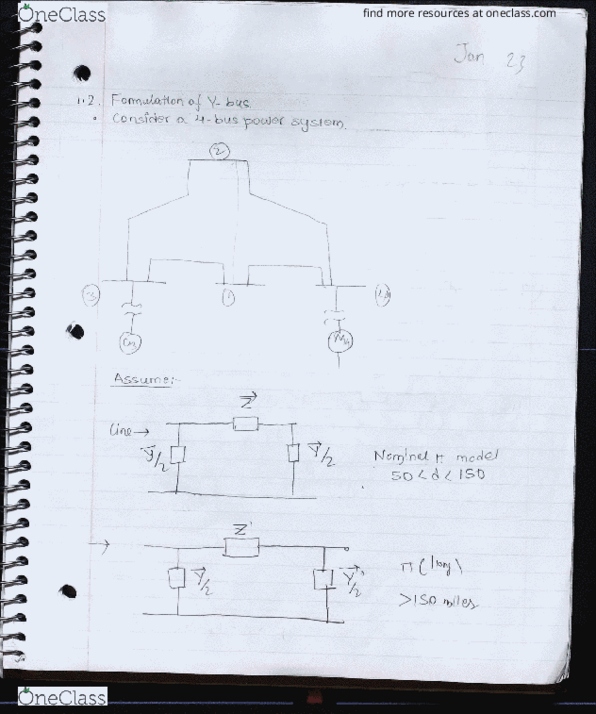 OneClass
find more resources at oneclass.com
Jan 23
1.2. Formulation of Y-bus.
• Consider a 4-bus power system.
2
3
1
4
G3
Assume:-
Z
Line →
Y/2
Y/2
Nominal π model
50 < d < 150
Z'
Y/2
Y'/2
π (long)
>150 miles
OneClass
find more resources at oneclass.com